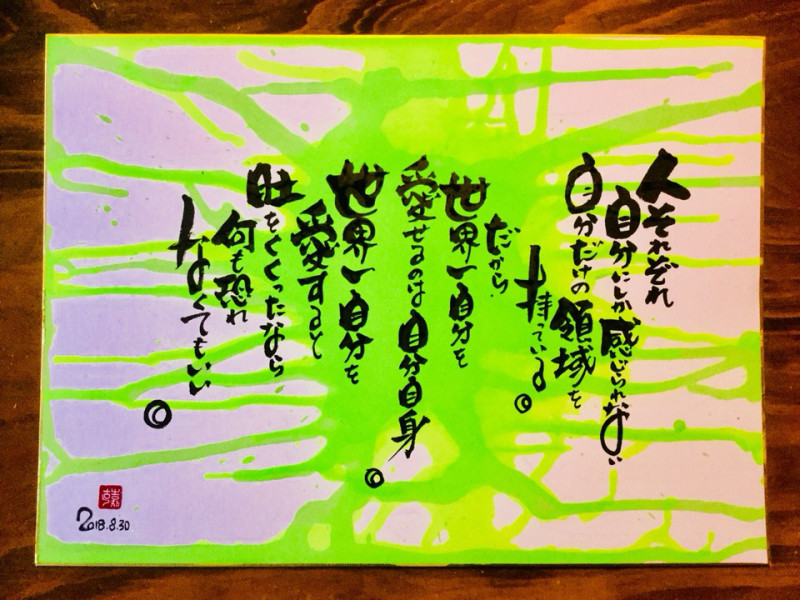 人それぞれ
自分にしか感じられない
自分だけの領域を
持っている。
だから
世界一自分を
愛せるのは自分自身。
世界一自分を
愛すると
肚をくくったなら
何も恐れ
なくてもいい。
2018.8.30